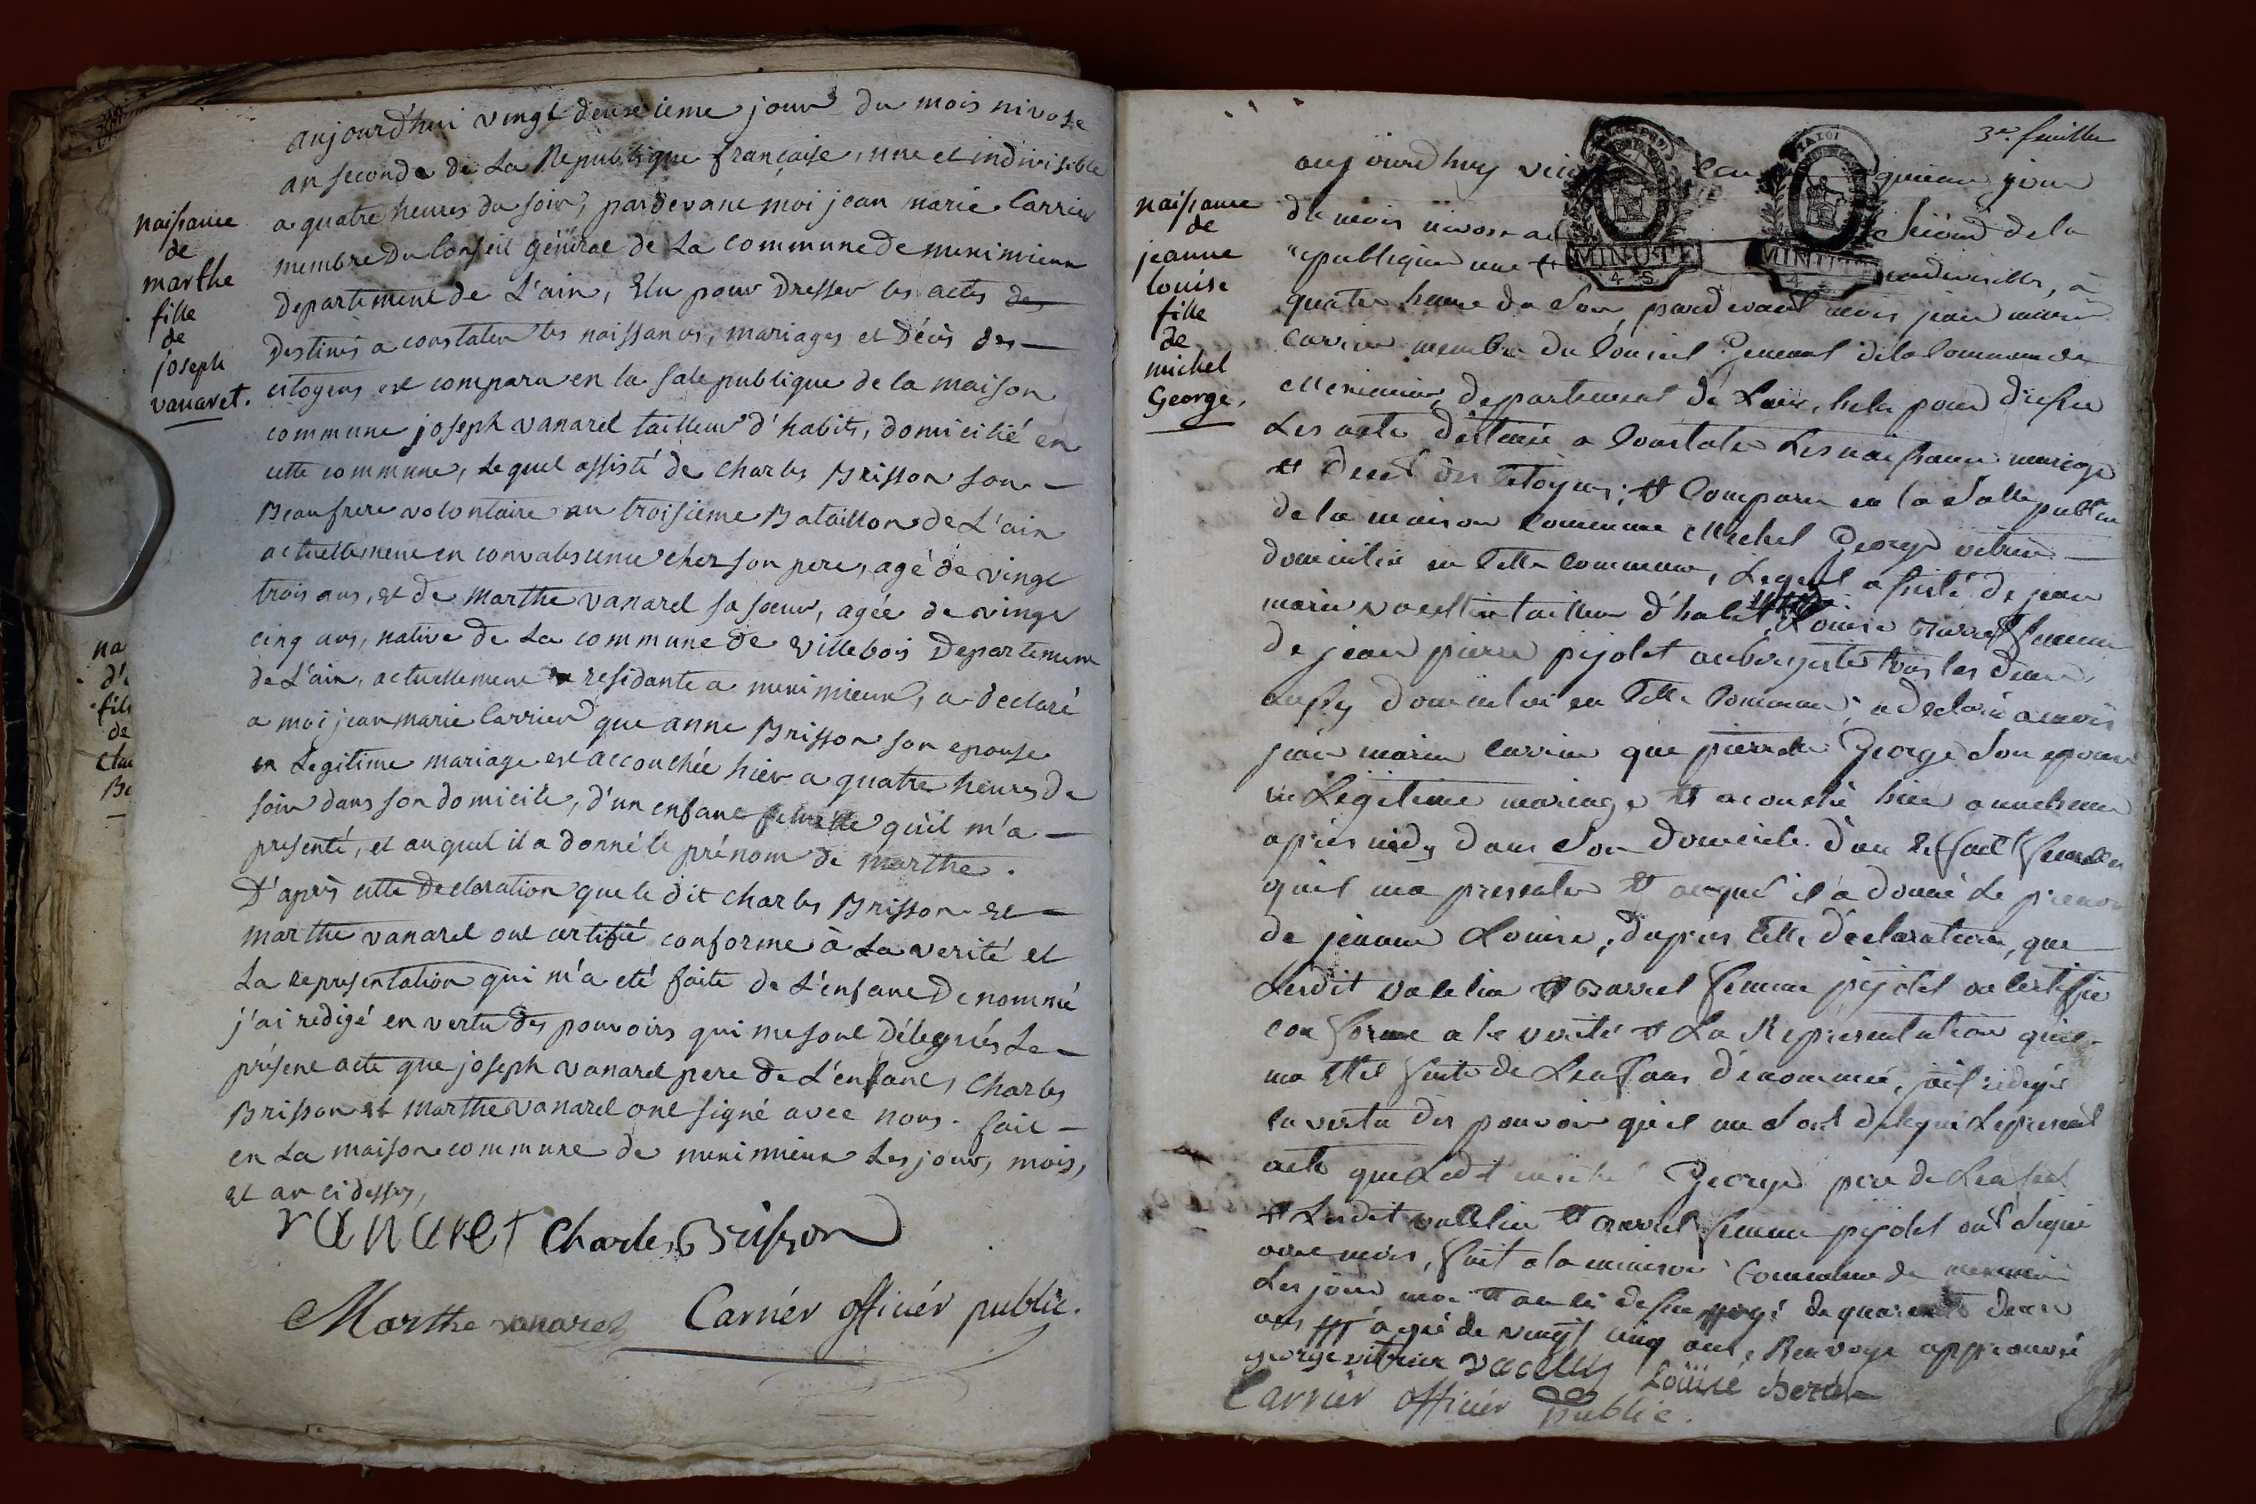 aujourd'hui vingt deuxieme jour du mois nivose
an seconde de La Republique française, une et indivisible
a quatre heures du soir, pardevant moi jean marie Carrier
membre Du Conseil général de La commune de meximieux
Departement de L'ain, Elu pour Dresser les actes des
Destinés a constater les naissances, mariages et Décès des
citoyens est comparu en la sale publique de la maison
commune joseph vanaret tailleur d'habits, domicilié en
cette commune, Lequel assisté de charles Brisson son
Beaufrere volontaire au troisieme Bataillon de L'ain
actuellement en convalescence cher son pere, agé de vingt
trois ans, et de Marthe vanaret sa soeur, agée de vingt
cinq ans, native de La commune de villebois Departement
de L'ain, actuellement residante a meximieux, a declaré
a moi jean marie Carrier que anne Brisson son epouse
en Legitime mariage est accouchée hier a quatre heures du
soir dans son domicile, d'un enfant femelle qu'il m'a
presenté, et auquel il a donné le prénom de marthe.
D'après cette Declaration que le dit charles Brisson et
marthe vanaret ont certifié conforme à La verité et
La representation qui m'a eté faite de L'enfant Denommé
j'ai redigé en vertu des pouvoirs qui me sont Délegués Le
présent acte que joseph vanaret pere de L'enfant, charles
Brisson et marthe vanaret ont signé avec nous. fait
en La maison commune de meximieux Les jour, mois,
et an ci dessus,
vanaret Charles Brisson
Marthe vanaret Carrier officier public.
naissance
de
marthe
fille
de
joseph
vanaret.
na
d'
fill
de
Cla
Be
3e. feuillet
naissance
de
jeanne
louise
fille
de
michel
George,
MINUTE
4 S
MINUTE
4 S
aujourdhuy jour
du mois nivose Second de la
republique une et indivisible, à
quatre heure du Soir, pardevant mois jean marie
Carrier membre du Conseil General de la Commune de
Meximieux departement de Lain, helu pour dresser
Les acte destinée a Constater Les naissance mariage
et deces des Citoyens; et Comparu en la Salle publique
de la maison Commune Michel George vitrier
domicilié en Cette Commune, Lequel assisté de jean
marie vacellin tailleur d'habit, Louise femme
de jean pierre pijolet aubergiste tous les deux
aussy domicilié en Cette Commune, a declaré a mois
jean marie Carrier que pierrette George Son epouse
en Légitime mariage et acouché hier a une heure
apres midy dans Son domicile d'un enfant femelle
quil ma presenter et auquel il a donné Le prenom
de jeanne Louise; dapres Cette declaration, que
Lesdit et femme pijolet on Certifie
conforme a la verité et La Representation quil
ma Eté faite de Lenfans denommée, jait redigé
en vertu des pouvoir quil me Sont delegué Le present
acte que Ledit michel George pere de Lenfant
et Lesdit et femme pijolet ont Signé
avec mois, fait a la maison Commune de meximieux
Les jour mois et an ci dessus agé de quarante deux
ans agé de vingt cinq ans, Renvoye approuvé
george vitrier Louise
Carrier officier public.